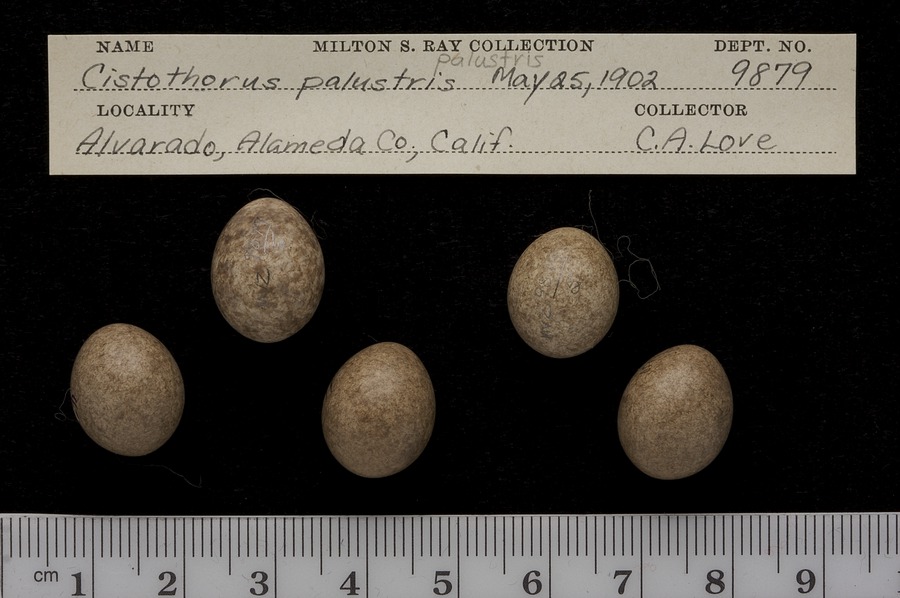 NAME MILTON S. RAY COLLECTION DEPT. NO.
palustris
Cistothorus palustris May 25, 1902 9879
LOCALITY COLLECTOR
Alvarado, Alameda Co., Calif. C.A. Love
cm 1 2 3 4 5 6 7 8 9